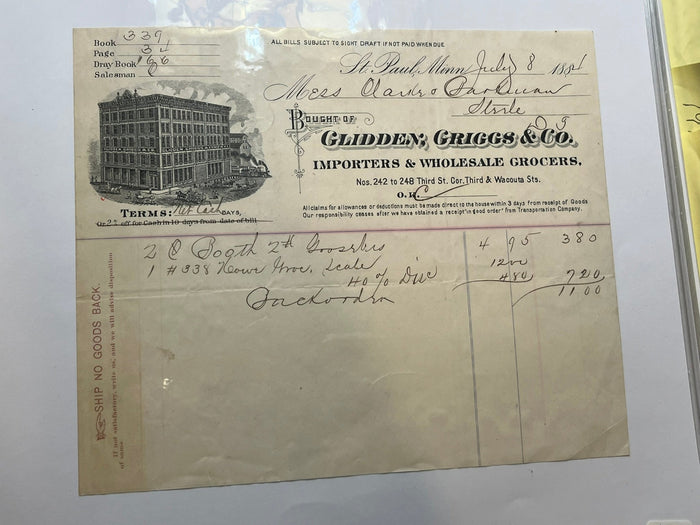 Book 339
Page 34
Dray Book 166
Salesman
ALL BILLS SUBJECT TO SIGHT DRAFT IF NOT PAID WHEN DUE.
St. Paul, Minn July 8 1884
Mess
BOUGHT OF
GLIDDEN, GRIGGS & CO.
IMPORTERS & WHOLESALE GROCERS,
Nos. 242 to 248 Third St. Cor. Third & Wacouta Sts.
O.K.
All claims for allowances or deductions must be made direct to the house within 3 days from receipt of Goods
Our responsibility ceases after we have obtained a receipt "in good order" from Transportation Company.
TERMS: Net Cash DAYS,
Or 2% off for Cash in 10 days from date of bill
2 2d 4 95 380
1 #338 Scale 1200
40% Dis 480 720
1100
SHIP NO GOODS BACK.
If not satisfactory, write us, and we will advise disposition
of same